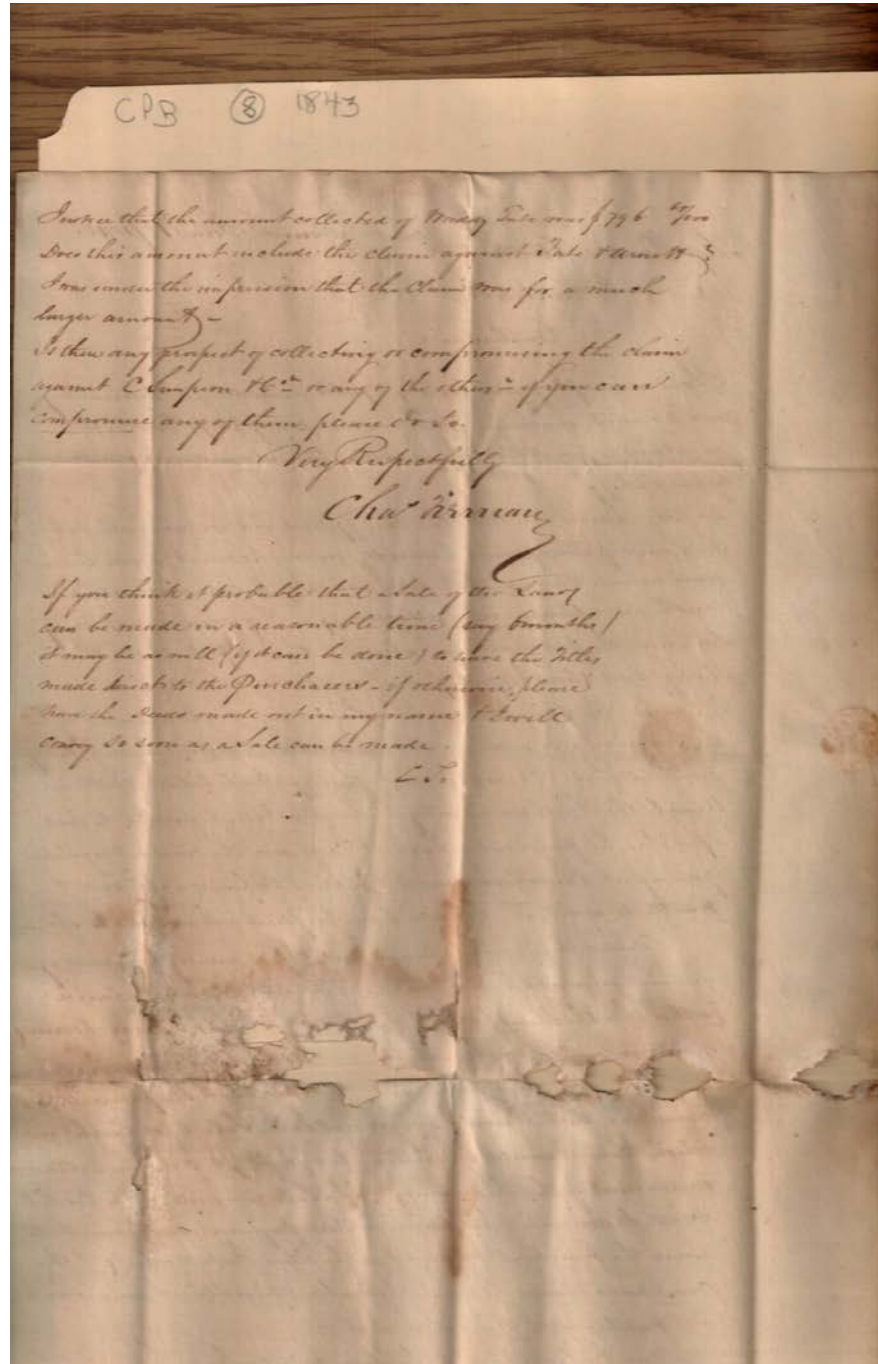 CPB 8 1843
I notice that the amount collected of Tate was $796 /100
Does this amount include the claim against Tate &
I was under the impression that the Claim was for a much
larger amount –
Is there any prospect of collecting or compromising the claim
against C Simpson & Co or any of the others – if you can
compromise any of them, please do so.
Very Respectfully
Chas
If you think it probable that a Sale of the Land
can be made in a reasonable time (say 6 months)
it may be as well (if it can be done) to have the Titles
made direct to the Purchasers – if otherwise, please
have the Deeds made out in my name & I will
convey so soon as a Sale can be made.